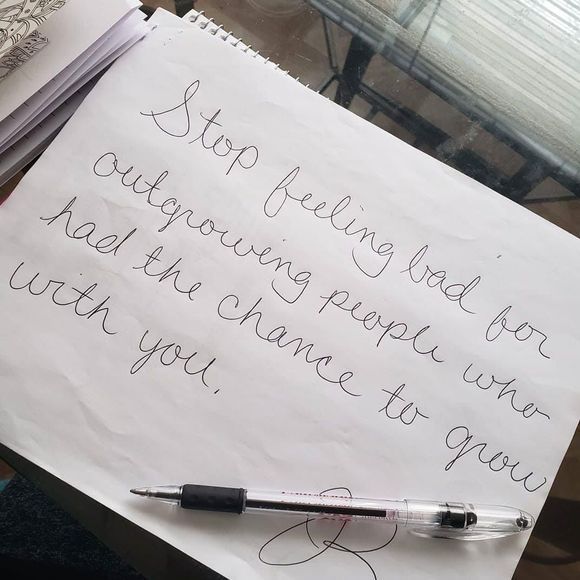 Stop feeling bad for
outgrowing people who
had the chance to grow
with you.